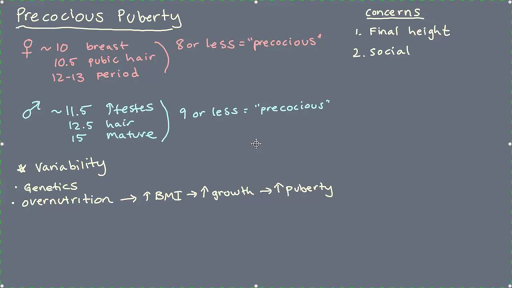 Precocious Puberty
♀ ~10 breast
10.5 pubic hair
12-13 period
8 or less = "precocious"
♂ ~11.5 ↑testes
12.5 hair
15 mature
9 or less = "precocious"
* Variability
· Genetics
· overnutrition → ↑BMI → ↑growth → ↑puberty
concerns
1. Final height
2. social